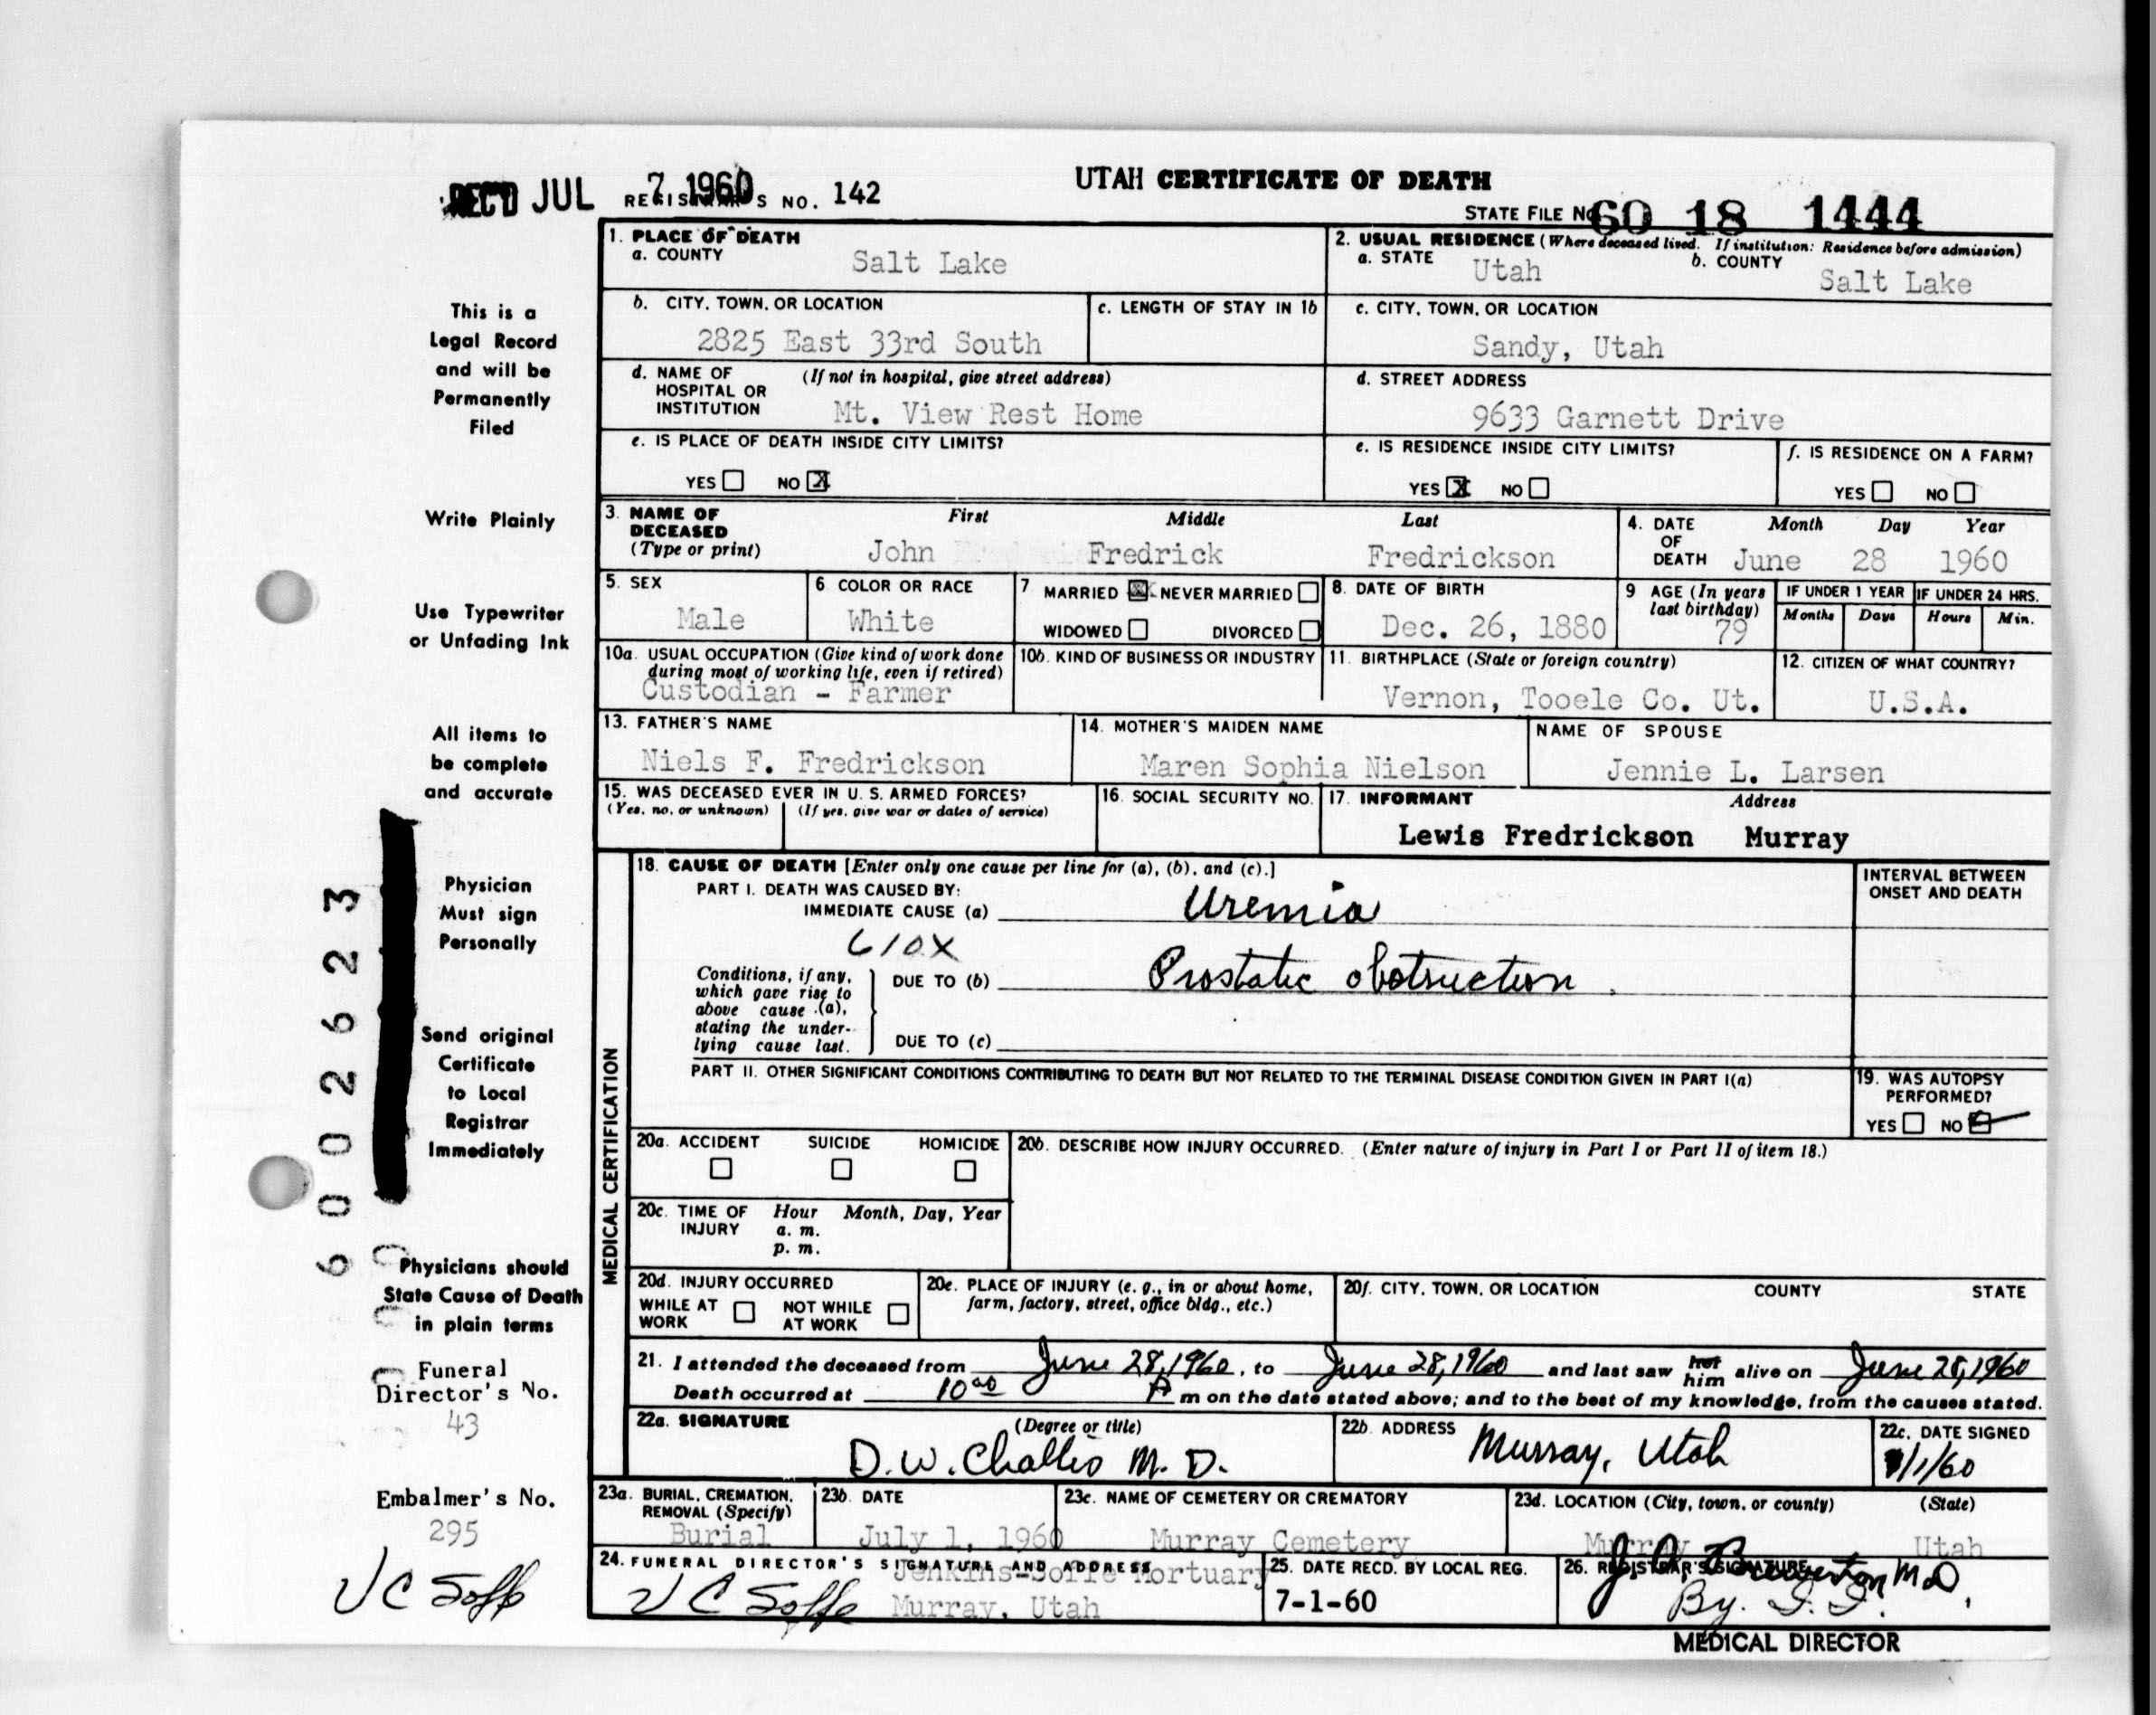 REC'D JUL 7 1960 REGISTRAR'S NO. 142
UTAH CERTIFICATE OF DEATH
STATE FILE No 60 18 1444
This is a
Legal Record
and will be
Permanently
Filed
Write Plainly
Use Typewriter
or Unfading Ink
All items to
be complete
and accurate
Physician
Must sign
Personally
Send original
Certificate
to Local
Registrar
Immediately
Physicians should
State Cause of Death
in plain terms
Funeral
Director's No.
43
Embalmer's No.
295
V C Soffe
6002623
1. PLACE OF DEATH
a. COUNTY Salt Lake
2. USUAL RESIDENCE (Where deceased lived. If institution: Residence before admission)
a. STATE Utah b. COUNTY Salt Lake
b. CITY, TOWN, OR LOCATION 2825 East 33rd South
c. LENGTH OF STAY IN 1b
c. CITY, TOWN, OR LOCATION Sandy, Utah
d. NAME OF HOSPITAL OR INSTITUTION (If not in hospital, give street address) Mt. View Rest Home
d. STREET ADDRESS 9633 Garnett Drive
e. IS PLACE OF DEATH INSIDE CITY LIMITS?
YES NO X
e. IS RESIDENCE INSIDE CITY LIMITS?
YES X NO
f. IS RESIDENCE ON A FARM?
YES NO
3. NAME OF DECEASED (Type or print) First Middle Last
John Fredrick Fredrickson
4. DATE OF DEATH Month Day Year
June 28 1960
5. SEX Male
6 COLOR OR RACE White
7 MARRIED X NEVER MARRIED
WIDOWED DIVORCED
8. DATE OF BIRTH Dec. 26, 1880
9 AGE (In years last birthday) 79
IF UNDER 1 YEAR Months Days
IF UNDER 24 HRS. Hours Min.
10a. USUAL OCCUPATION (Give kind of work done during most of working life, even if retired)
Custodian - Farmer
10b. KIND OF BUSINESS OR INDUSTRY
11. BIRTHPLACE (State or foreign country) Vernon, Tooele Co. Ut.
12. CITIZEN OF WHAT COUNTRY? U.S.A.
13. FATHER'S NAME Niels F. Fredrickson
14. MOTHER'S MAIDEN NAME Maren Sophia Nielson
NAME OF SPOUSE Jennie L. Larsen
15. WAS DECEASED EVER IN U. S. ARMED FORCES?
(Yes, no, or unknown) (If yes, give war or dates of service)
16. SOCIAL SECURITY NO.
17. INFORMANT Address
Lewis Fredrickson Murray
MEDICAL CERTIFICATION
18. CAUSE OF DEATH [Enter only one cause per line for (a), (b), and (c).]
PART I. DEATH WAS CAUSED BY:
IMMEDIATE CAUSE (a) Uremia
610X
Conditions, if any, which gave rise to above cause (a), stating the underlying cause last.
DUE TO (b) Prostatic obstruction
DUE TO (c)
INTERVAL BETWEEN ONSET AND DEATH
PART II. OTHER SIGNIFICANT CONDITIONS CONTRIBUTING TO DEATH BUT NOT RELATED TO THE TERMINAL DISEASE CONDITION GIVEN IN PART I(a)
19. WAS AUTOPSY PERFORMED?
YES NO
20a. ACCIDENT SUICIDE HOMICIDE
20b. DESCRIBE HOW INJURY OCCURRED. (Enter nature of injury in Part I or Part II of item 18.)
20c. TIME OF INJURY Hour Month, Day, Year
a. m.
p. m.
20d. INJURY OCCURRED
WHILE AT WORK NOT WHILE AT WORK
20e. PLACE OF INJURY (e. g., in or about home, farm, factory, street, office bldg., etc.)
20f. CITY, TOWN, OR LOCATION COUNTY STATE
21. I attended the deceased from June 28, 1960, to June 28, 1960 and last saw her him alive on June 28, 1960
Death occurred at 10 00 P m on the date stated above; and to the best of my knowledge, from the causes stated.
22a. SIGNATURE (Degree or title)
D. W. Challis M. D.
22b. ADDRESS Murray, Utah
22c. DATE SIGNED 7/1/60
23a. BURIAL, CREMATION, REMOVAL (Specify) Burial
23b. DATE July 1, 1960
23c. NAME OF CEMETERY OR CREMATORY Murray Cemetery
23d. LOCATION (City, town, or county) (State)
Murray Utah
24. FUNERAL DIRECTOR'S SIGNATURE AND ADDRESS
Jenkins-Soffe Mortuary
V C Soffe Murray, Utah
25. DATE RECD. BY LOCAL REG.
7-1-60
26. REGISTRAR'S SIGNATURE
M.D.
By.
MEDICAL DIRECTOR